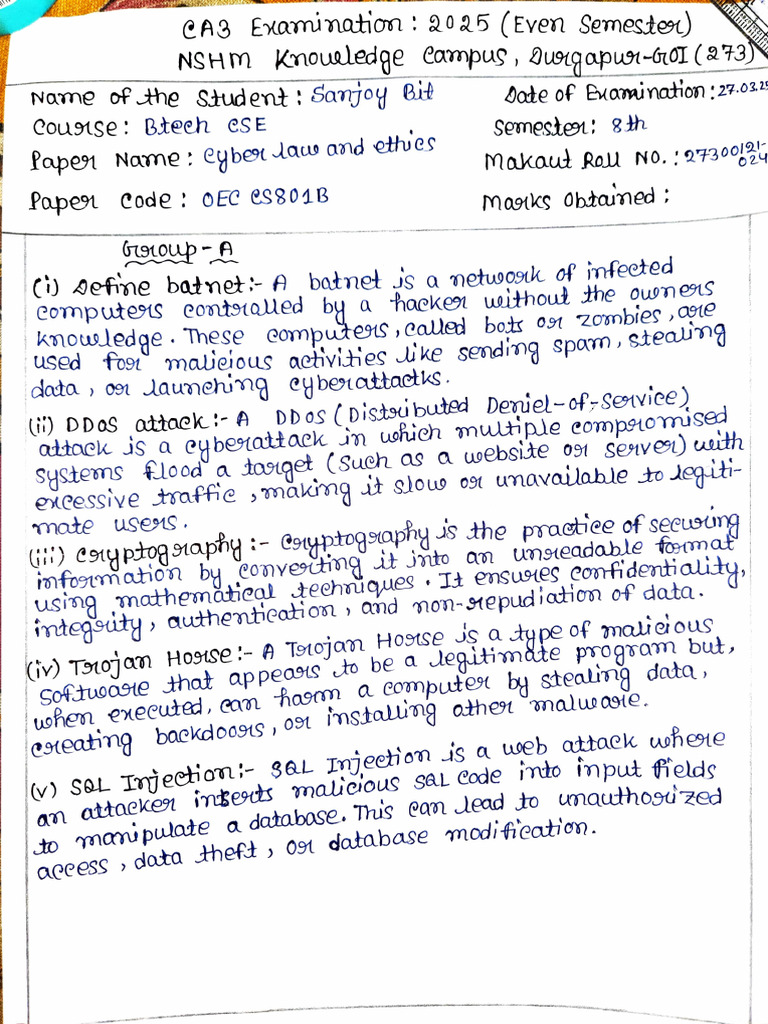 CA3 Examination: 2025 (Even Semester)
NSHM Knowledge Campus, Durgapur-GOI (273)
Name of the Student: Sanjoy Bit
Date of Examination: 27.03.25
Course: Btech CSE
Semester: 8th
Paper Name: Cyber law and ethics
Makaut Roll NO.: 27300121-
024
Paper Code: OEC CS801B
Marks Obtained:
Group-A
(i) Define batnet:- A batnet is a network of infected
computers controlled by a hacker without the owners
knowledge. These computers, called bots or zombies, are
used for malicious activities like sending spam, stealing
data, or launching cyberattactks.
(ii) DDoS attack:- A DDOS (Distributed Deniel-of-Service)
attack is a cyberattack in which multiple compromised
systems flood a target (such as a website or server) with
excessive traffic, making it slow or unavailable to legiti-
mate users.
(iii) Cryptography:- Cryptography is the practice of securing
information by converting it into an unreadable format
using mathematical techniques. It ensures confidentiality,
integrity, authentication, and non-repudiation of data.
(iv) Trojan Horse:- A Trojan Horse is a type of malicious
software that appears to be a legitimate program but,
when executed, can harm a computer by stealing data,
creating backdoors, or installing other malware.
(v) SQL Injection:- SQL Injection is a web attack where
an attacker inserts malicious SQL code into input fields
to manipulate a database. This can lead to unauthorized
access, data theft, or database modification.